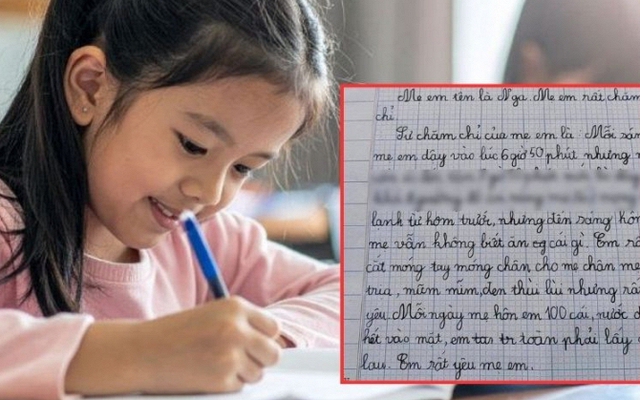 Mẹ em tên là Nga. Mẹ em rất chăm
chỉ.
Sự chăm chỉ của mẹ em là: Mỗi
mẹ em dậy vào lúc 6 giờ 50 phút nhưng
lạnh từ hôm trước, nhưng đến sáng hôm
mẹ vẫn không biết ăn cái gì. Em
cắt móng tay móng chân cho mẹ chân mẹ
trìa, mũm mĩm, đen thùi lùi nhưng
yêu. Mỗi ngày mẹ hôn em 100 cái, nước
hết vào mặt, em toàn phải lấy
lau. Em rất yêu mẹ em.